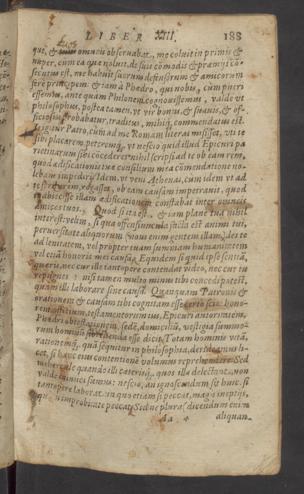 LIBER XIII. 188
que, & omneis observabat, me coluit in primis &
nuper, cum ea que voluit, de suis cōmodis & præmijs cō=
secutus est, me habuit suorum defensorem & amicorum
fere principem. & iam à Phædro, qui nobis, cum pueri
essemus, ante quam Philonem cognovissemus, valde ut
philosophus, postea tamen, ut vir bonus, & suavis, & of=
ficiosus probabatur, traditus, mihiq; commendatus est.
Is igitur Patro, cum ad me Romam literas misisset, uti te
sibi placarem peteremq; ut nescio quid illud Epicuri pa
rietinarum sibi cōcederes: nihil scripsi ad te ob eam rem,
quod ædificationis tuæ consilium mea commendatione no=
lebam impediri. Idem, ut veni Athenas, cum idem ut ad
te scriberem, rogasset, ob eam causam impetravit, quod
te abiecisse illam ædificationem constabat inter omneis
amicos tuos. Quod si ita est, & iam plane tua nihil
interest: velim, si qua offensiuncula
perversitate aliquorum (novi enim gentem illam) des te
ad lenitatem, vel propter tuam summam humanitatem
vel etiā honoris mei causa. Equidem si quid ipse sentiā,
quæris, nec cur ille tantopere contendat video, nec cur tu
repugnes: nisi tamen multo minus tibi concedi potest,
quam illi laborare sine causa. Quanquam Patronis &
orationem & causam tibi cognitam esse certo scio. hono=
rem, officium, testamentorum ius, Epicuri autoritatem,
Phædri obtestationem, sedē, domicilium, vestigia summo=
rum hominum sibi tuenda esse dicit. Totam hominis vitā,
rationemq; quā sequitur in philosophia, derideamus li=
cet, si hanc eius contentionē volumus reprehendere. Sed
mehercule quando illi cæterisq; quos illa delectant, non
valde inimici sumus: nescio, an ignoscendum sit huic. si
tantopere laborat. in quo etiam si peccat, magis ineptijs,
quàm improbitate peccat. Sed ne plura (dicendum enim
Aa 4 aliquan-